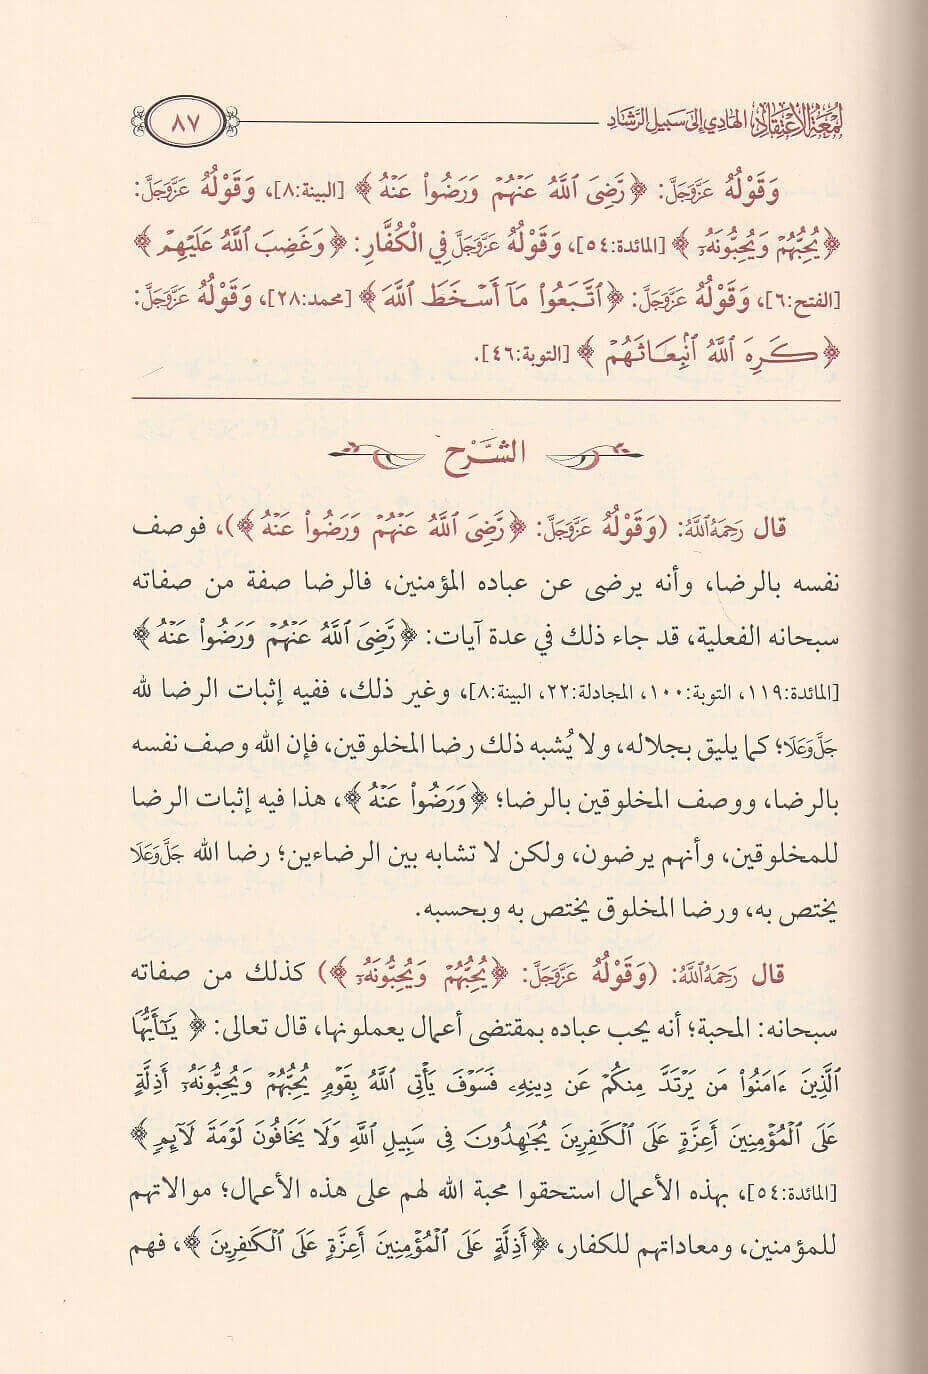 لمعة الاعتقاد الهادي إلى سبيل الرشاد
٨٧
وَقَوْلُهُ عَزَّوَجَلَّ: ﴿رَّضِىَ ٱللَّهُ عَنْهُمْ وَرَضُوا۟ عَنْهُ﴾ [البينة:٨]، وَقَوْلُهُ عَزَّوَجَلَّ:
﴿يُحِبُّهُمْ وَيُحِبُّونَهُۥٓ﴾ [المائدة:٥٤]، وَقَوْلُهُ عَزَّوَجَلَّ فِي الْكُفَّارِ: ﴿وَغَضِبَ ٱللَّهُ عَلَيْهِمْ﴾
[الفتح:٦]، وَقَوْلُهُ عَزَّوَجَلَّ: ﴿ٱتَّبَعُوا۟ مَآ أَسْخَطَ ٱللَّهَ﴾ [محمد:٢٨]، وَقَوْلُهُ عَزَّوَجَلَّ:
﴿كَرِهَ ٱللَّهُ ٱنۢبِعَاثَهُمْ﴾ [التوبة:٤٦].
الشَّرْح
قال رَحِمَهُ اللَّهُ: (وَقَوْلُهُ عَزَّوَجَلَّ: ﴿رَّضِىَ ٱللَّهُ عَنْهُمْ وَرَضُوا۟ عَنْهُ﴾)، فوصف
نفسه بالرضا، وأنه يرضى عن عباده المؤمنين، فالرضا صفة من صفاته
سبحانه الفعلية، قد جاء ذلك في عدة آيات: ﴿رَّضِىَ ٱللَّهُ عَنْهُمْ وَرَضُوا۟ عَنْهُ﴾
[المائدة:١١٩، التوبة:١٠٠، المجادلة:٢٢، البينة:٨]، وغير ذلك، ففيه إثبات الرضا لله
جَلَّ وَعَلَا؛ كما يليق بجلاله، ولا يُشبه ذلك رضا المخلوقين، فإن الله وصف نفسه
بالرضا، ووصف المخلوقين بالرضا؛ ﴿وَرَضُوا۟ عَنْهُ﴾، هذا فيه إثبات الرضا
للمخلوقين، وأنهم يرضون، ولكن لا تشابه بين الرضاءين؛ رضا الله جَلَّ وَعَلَا
يختص به، ورضا المخلوق يختص به وبحسبه.
قال رَحِمَهُ اللَّهُ: (وَقَوْلُهُ عَزَّوَجَلَّ: ﴿يُحِبُّهُمْ وَيُحِبُّونَهُۥٓ﴾) كذلك من صفاته
سبحانه: المحبة؛ أنه يحب عباده بمقتضى أعمال يعملونها، قال تعالى: ﴿يَـٰٓأَيُّهَا
ٱلَّذِينَ ءَامَنُوا۟ مَن يَرْتَدَّ مِنكُمْ عَن دِينِهِۦ فَسَوْفَ يَأْتِى ٱللَّهُ بِقَوْمٍ يُحِبُّهُمْ وَيُحِبُّونَهُۥٓ أَذِلَّةٍ
عَلَى ٱلْمُؤْمِنِينَ أَعِزَّةٍ عَلَى ٱلْكَـٰفِرِينَ يُجَـٰهِدُونَ فِى سَبِيلِ ٱللَّهِ وَلَا يَخَافُونَ لَوْمَةَ لَآئِمٍ﴾
[المائدة:٥٤]، بهذه الأعمال استحقوا محبة الله لهم على هذه الأعمال؛ موالاتهم
للمؤمنين، ومعاداتهم للكفار، ﴿أَذِلَّةٍ عَلَى ٱلْمُؤْمِنِينَ أَعِزَّةٍ عَلَى ٱلْكَـٰفِرِينَ﴾، فهم